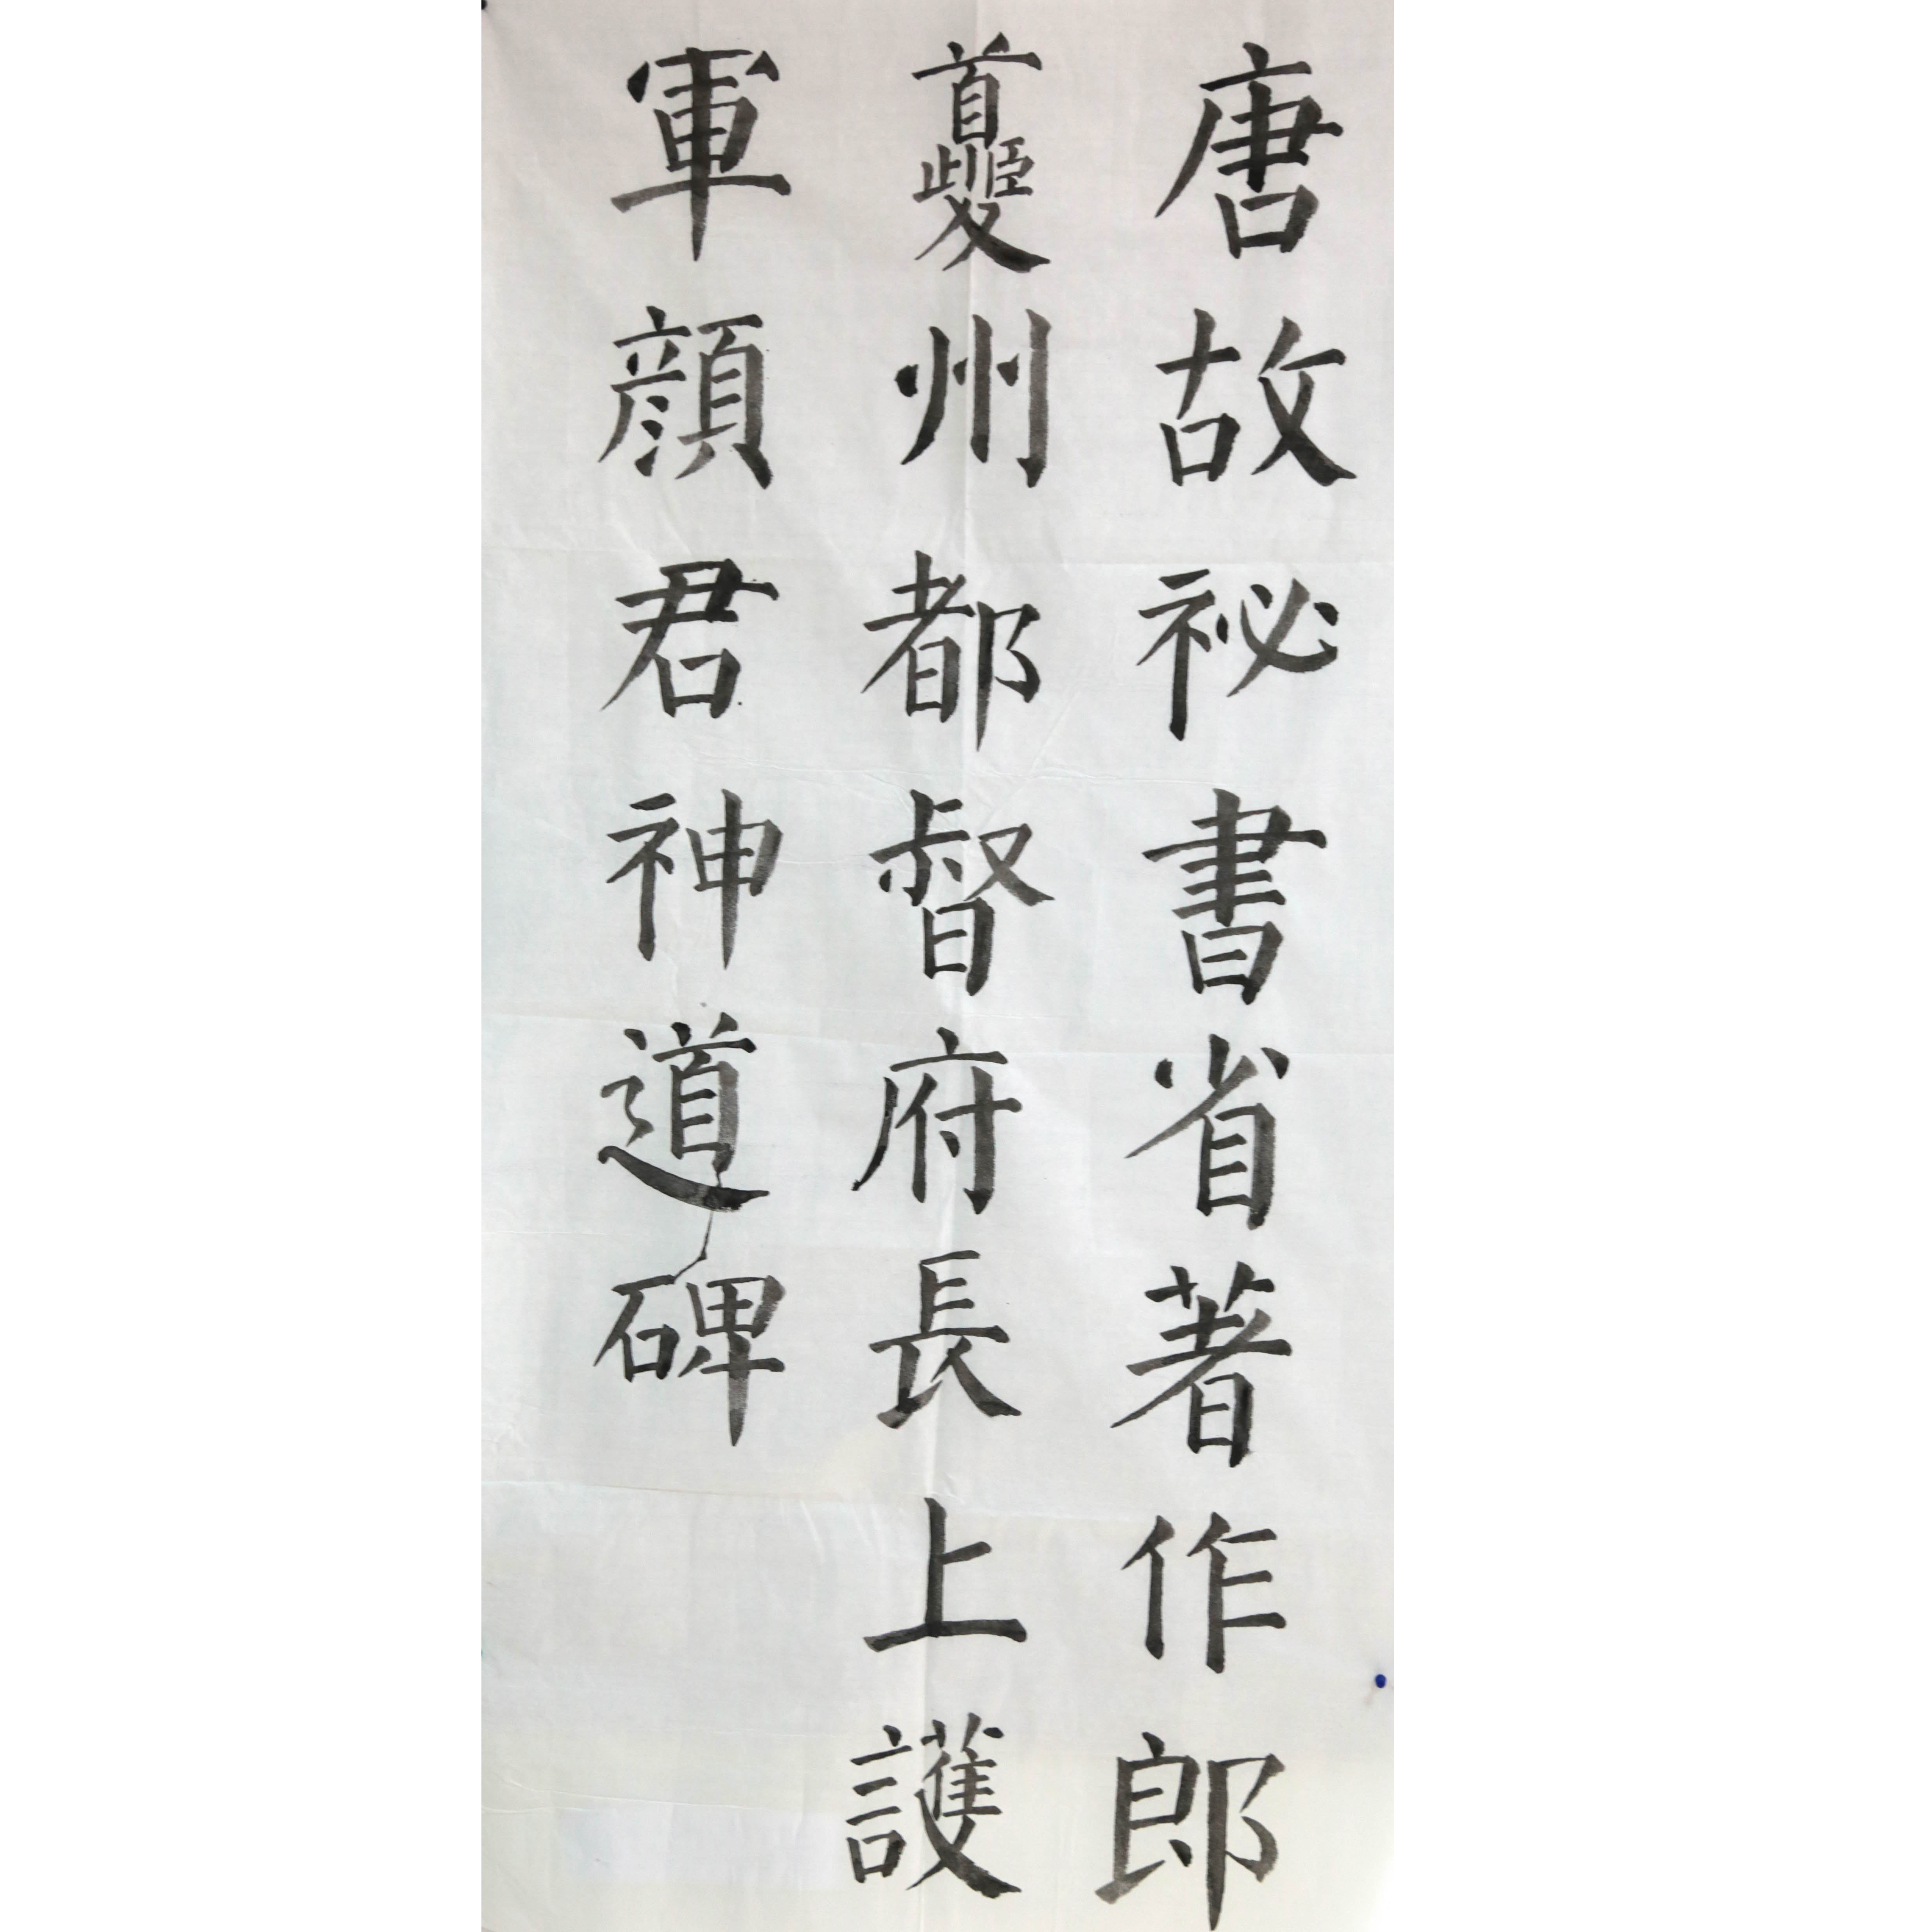 唐故祕書省著作郎
夔州都督府長上護
軍顔君神道碑